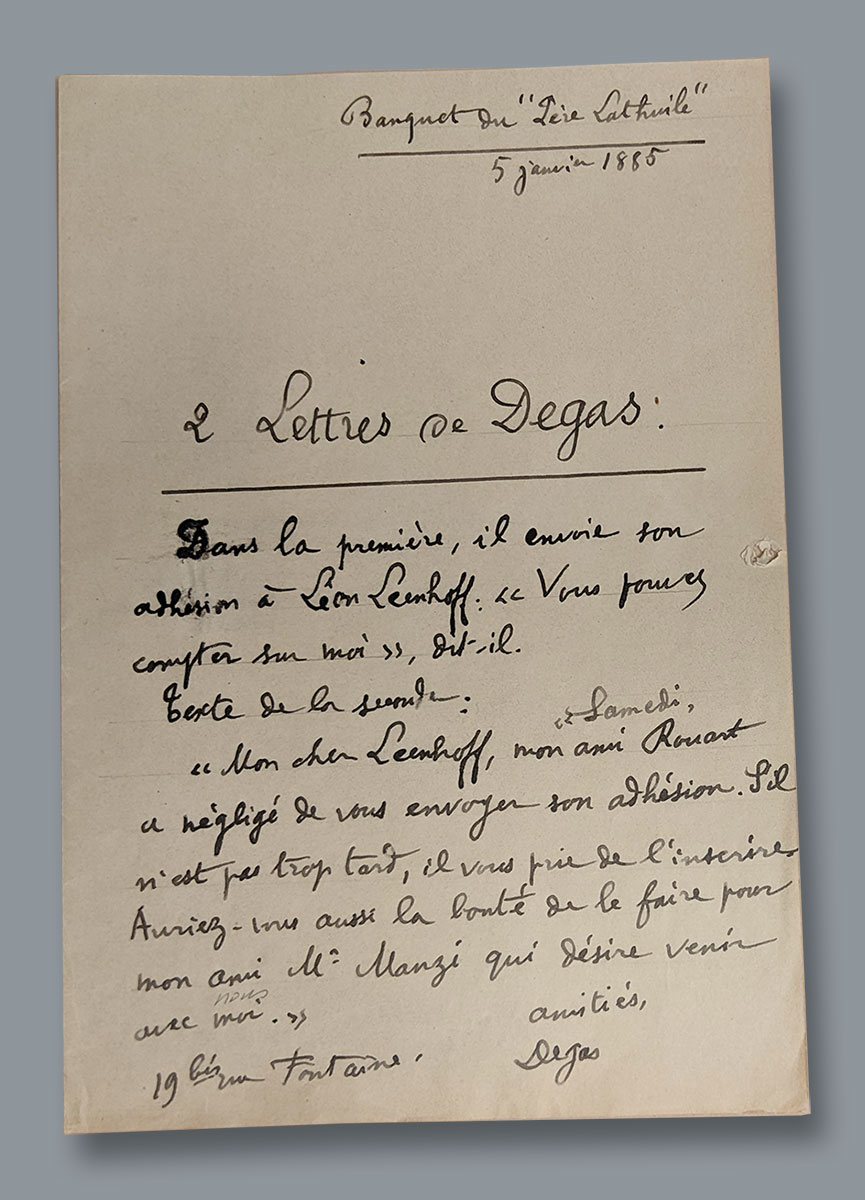 Banquet du "Père Lathuile"
5 janvier 1885
2 Lettres de Degas :
Dans la première, il envoie son
adhésion à Léon Leenhoff : « Vous pouvez
compter sur moi », dit-il.
Texte de la seconde :
« Samedi,
« Mon cher Leenhoff, mon ami Rouart
a négligé de vous envoyer son adhésion. S'il
n'est pas trop tard, il vous prie de l'inscrire.
Auriez-vous aussi la bonté de le faire pour
mon ami Mr Manzi qui désire venir
nous
avec moi. »
amitiés,
19 bis rue Fontaine.
Degas